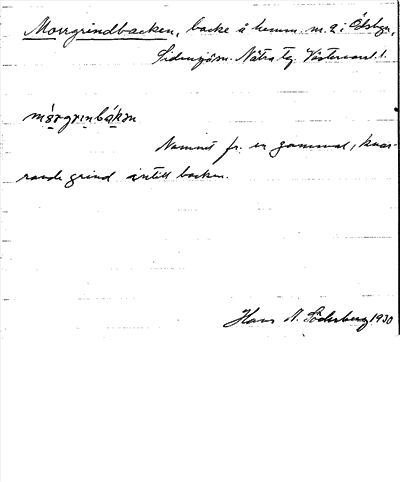 Morrgrindbacken, backe å hemm. nr. 2 i Ödsbyn,
Sidensjö sn. Nätra tg. Västernorrl. l.
mårgrinbákən
Namnet fr. en gammal, kvar-
varande grind intill backen.
Hans N. Söderberg 1930